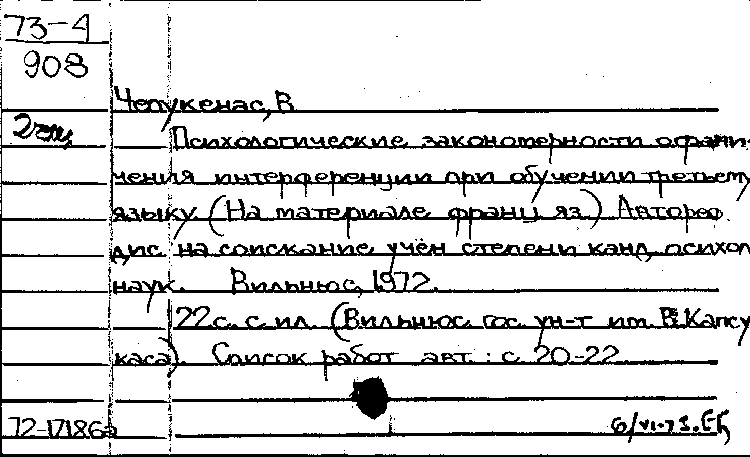 73-4
908
Чепукенас, В
2 экз
Психологические закономерности ограни-
чения интерференции при обучении третьему
языку (На материале франц яз.) Автореф.
дис. на соискание учён степени канд. психол
наук. Вильнюс, 1972.
22 с. с ил. (Вильнюс. гос. ун-т им. В. Капсу
каса). Список работ авт.: с 20-22
72-17186а
6/VI-73. ЕБ